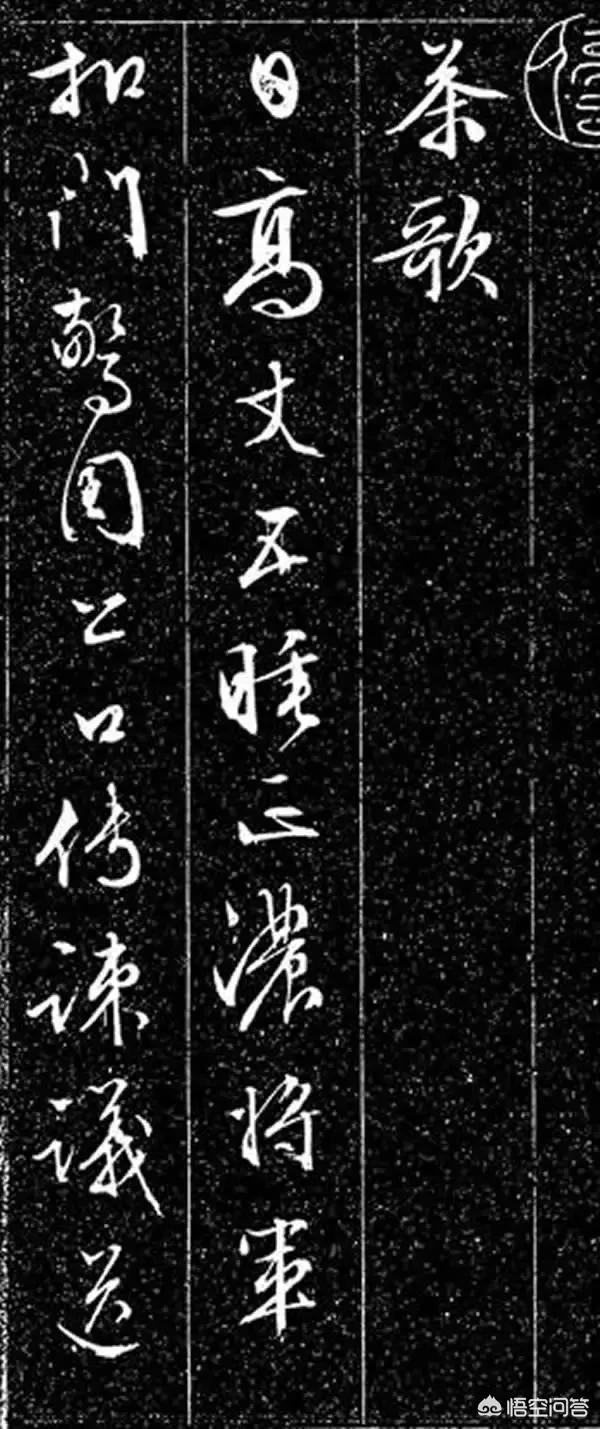 茶歌
日高丈五睡正濃將軍
扣門驚周公口傳諫議送
悟空问答